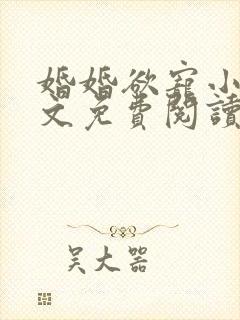 婚婚欲寵小
文免費閱讀
吴大器